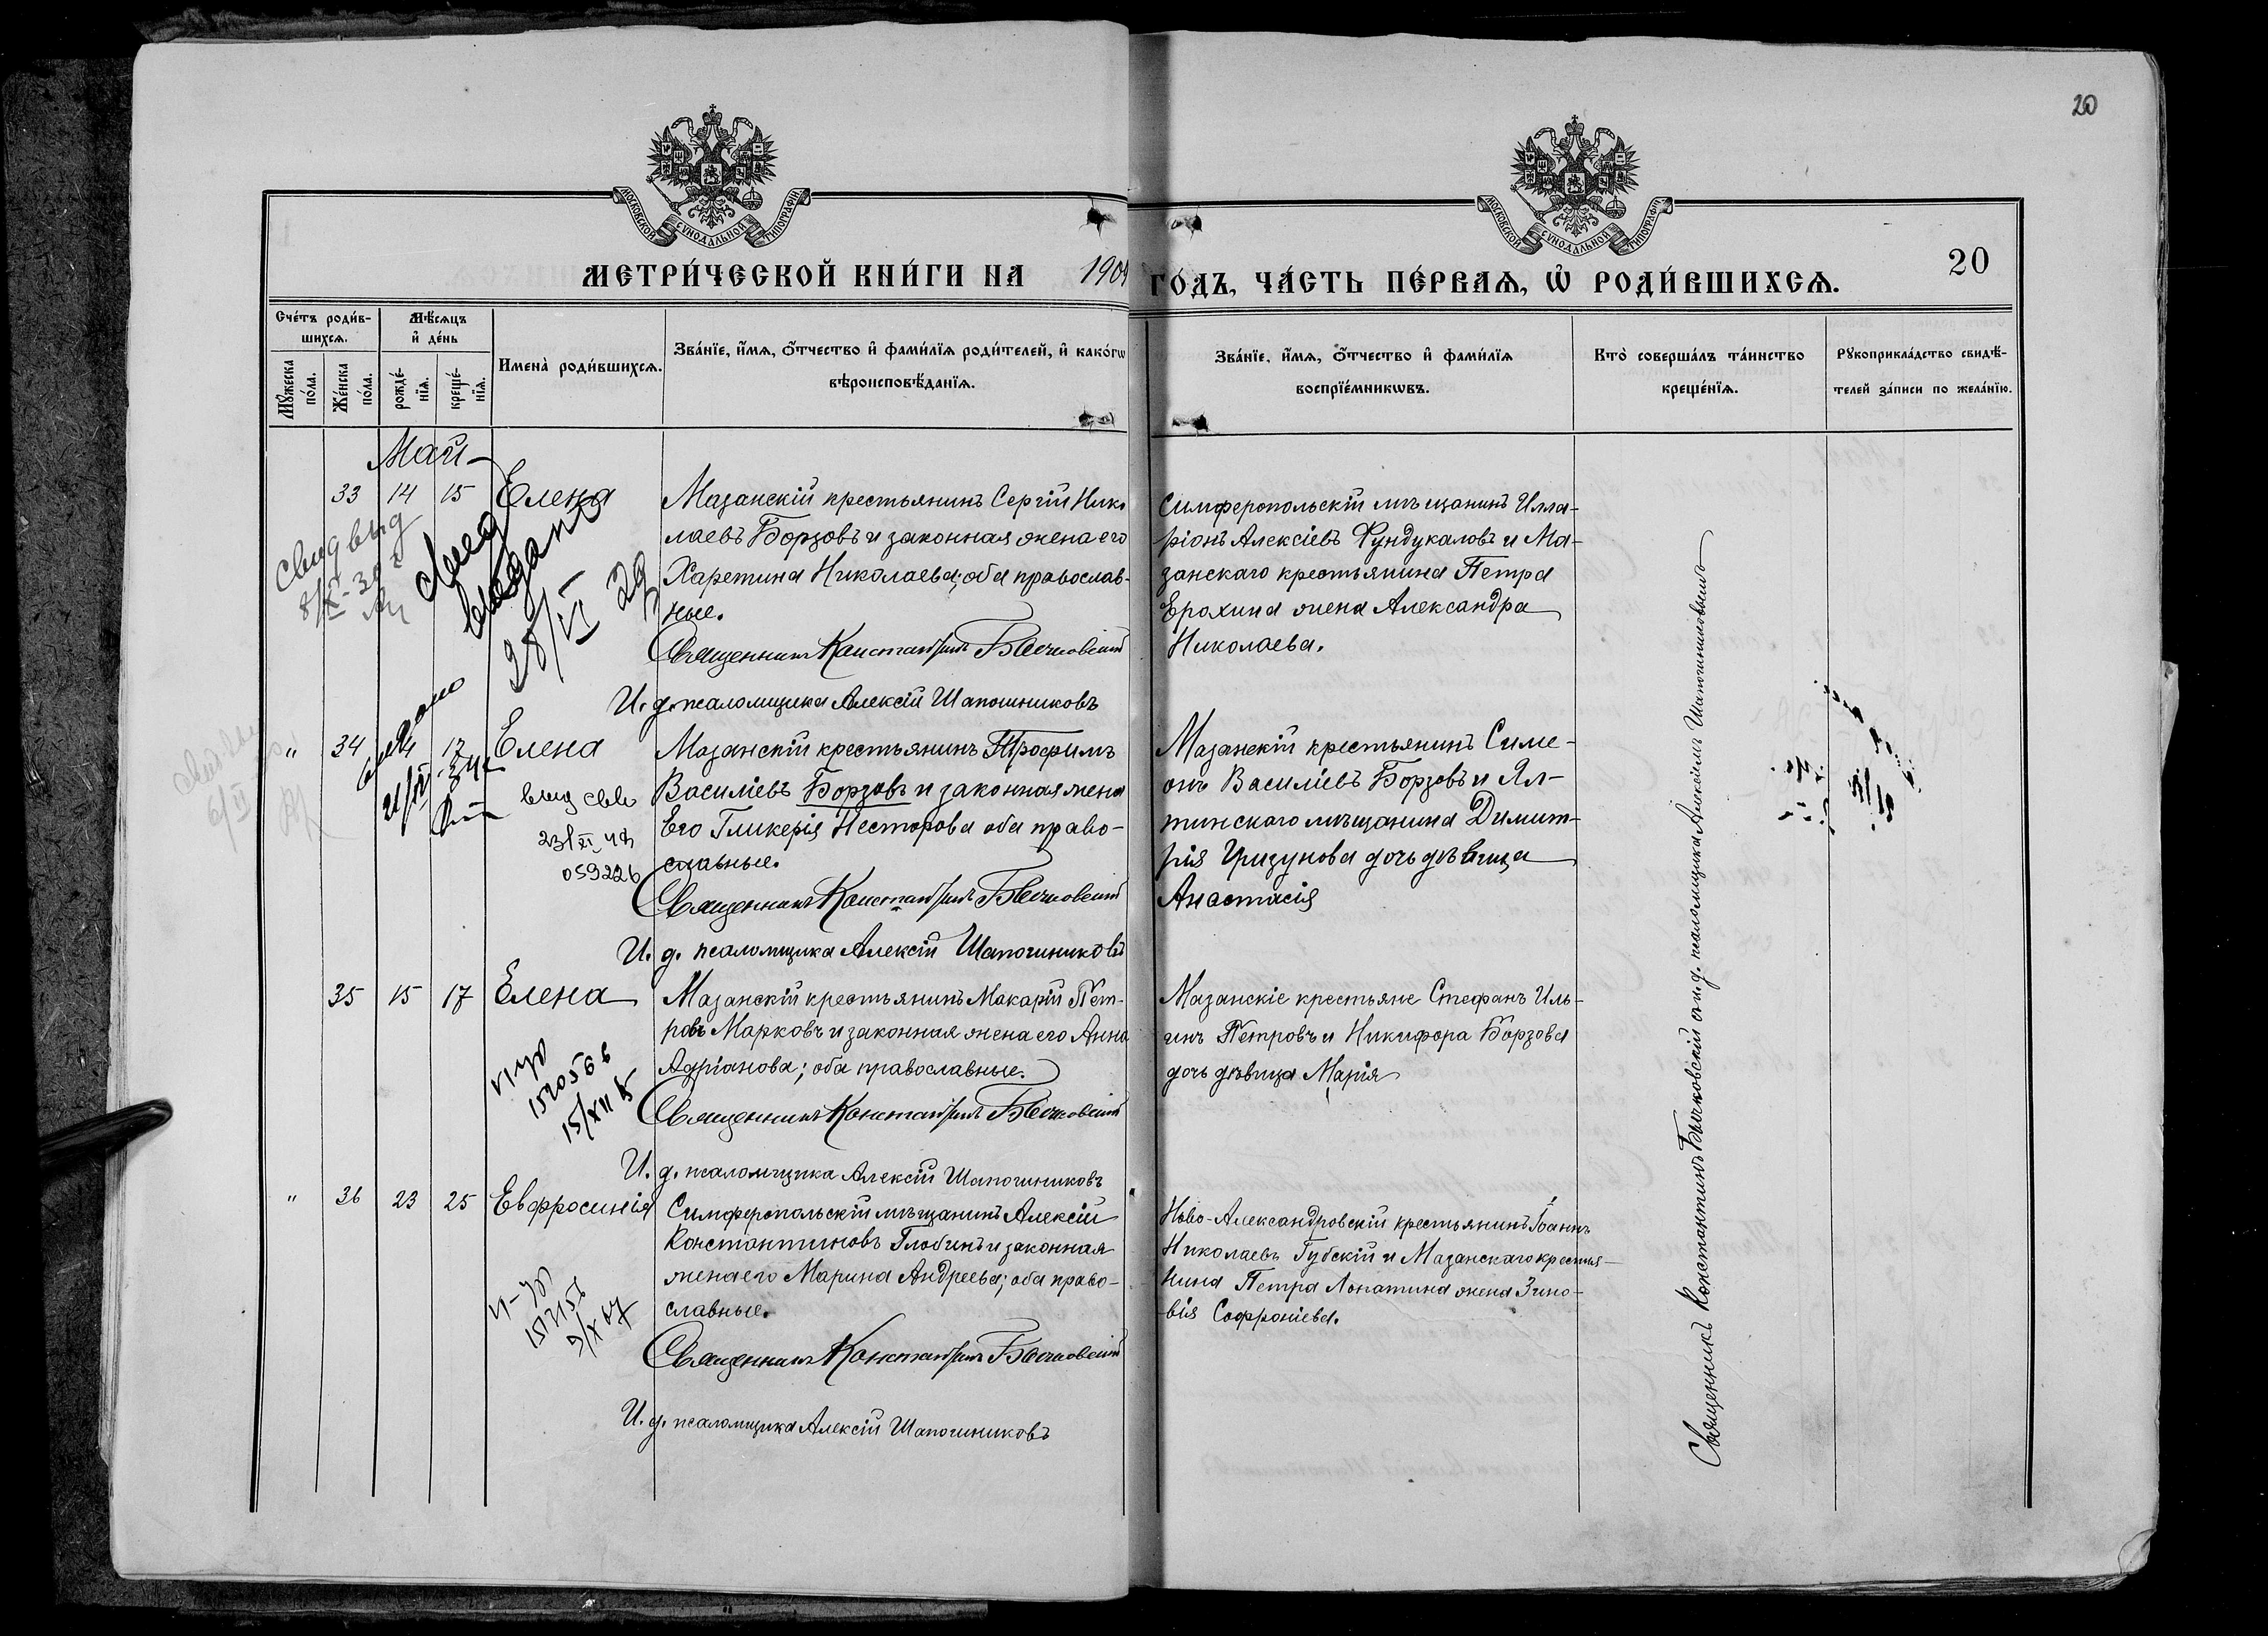 20
МОСКОВСКОЙ СѴНОДАЛЬНОЙ ТИПОГРАФІИ.
МОСКОВСКОЙ СѴНОДАЛЬНОЙ ТИПОГРАФІИ.
МЕТРИ́ЧЕСКОЙ КНИ́ГИ НА 1904 ГО́ДЪ, ЧА́СТЬ ПЕ́РВАѦ, Ѿ РОДИ́ВШИХСѦ.
20
Сче́тъ роди́в-
шихсѧ.
Мꙋ́жеска по́ла.
Же́нска по́ла.
Мѣ́сѧцъ
и҆ де́нь
рожде́-
нїѧ.
креще́-
нїѧ.
Имена̀ роди́вшихсѧ.
Зва́нїе, и҆́мѧ, ѻ҆́тчество и҆ фами́лїѧ роди́телей, и҆ како́гѡ
вѣроисповѣ́данїѧ.
Зва́нїе, и҆́мѧ, ѻ҆́тчество и҆ фами́лїѧ
воспрїе́мникѡвъ.
Кто̀ соверша́лъ та́инство
креще́нїѧ.
Рꙋкоприкла́дство свидѣ́-
телей за́писи по жела́нїю.
Май
33 14 15 Елена
Мазанскій крестьянинъ Сергій Нико
лаевъ Борзовъ и законная жена его
Харетина Николаева; оба православ-
ные.
Священникъ Константинъ Бычковскій
И. д. псаломщика Алексій Шапошниковъ
Симферопольскій мѣщанинъ Илла-
ріонъ Алексіевъ Фундукаловъ и Ма-
занскаго крестьянина Петра
Ерохина жена Александра
Николаева.
Свид выд
8/X-30 г
выдано
28/VI 29
" 34 14 17 Елена
Мазанскій крестьянинъ Трофимъ
Василіевъ Борзовъ и законная жена
Его Гликерія Несторова оба право-
славные.
Священникъ Константинъ Бычковскій
И. д. псаломщика Алексій Шапошниковъ
Мазанскій крестьянинъ Симе-
онъ Василіевъ Борзовъ и Ял-
тинскаго мѣщанина Димит-
рія Гризунова дочь дѣвица
Анастасія
выдано
выд свв
059226
35 15 17 Елена
Мазанскій крестьянинъ Макарій Пет-
ровъ Марковъ и законная жена его Анна
Адріанова; оба православные.
Священникъ Константинъ Бычковскій
И. д. псаломщика Алексій Шапошниковъ
Мазанскіе крестьяне Стефанъ Иль-
инъ Петровъ и Никифора Борзова
дочь дѣвица Марія
" 36 23 25 Евфросинія
Симферопольскій мѣщанинъ Алексій
Константиновъ Глобинъ и законная
жена его Марина Андреева; оба право-
славные.
Священникъ Константинъ Бычковскій
И. д. псаломщика Алексій Шапошниковъ
Ново-Александровскій крестьянинъ Іоаннъ
Николаевъ Губскій и Мазанскаго крестья-
нина Петра Лопатина жена Зино-
вія Софроніева.
Священникъ Константинъ Бычковскій с и. д. псаломщика Алексіемъ Шапошниковымъ